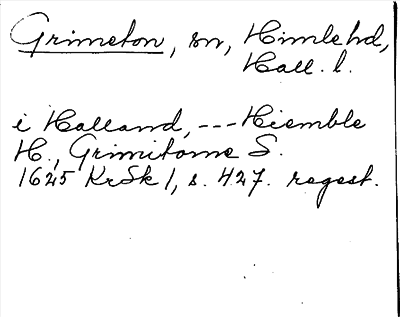 Grimeton, sn, Himlehd,
Hall. l.
i Halland, --- Hiemble
H., Grimitome S.
1625 KrSk 1, s. 427. regest.